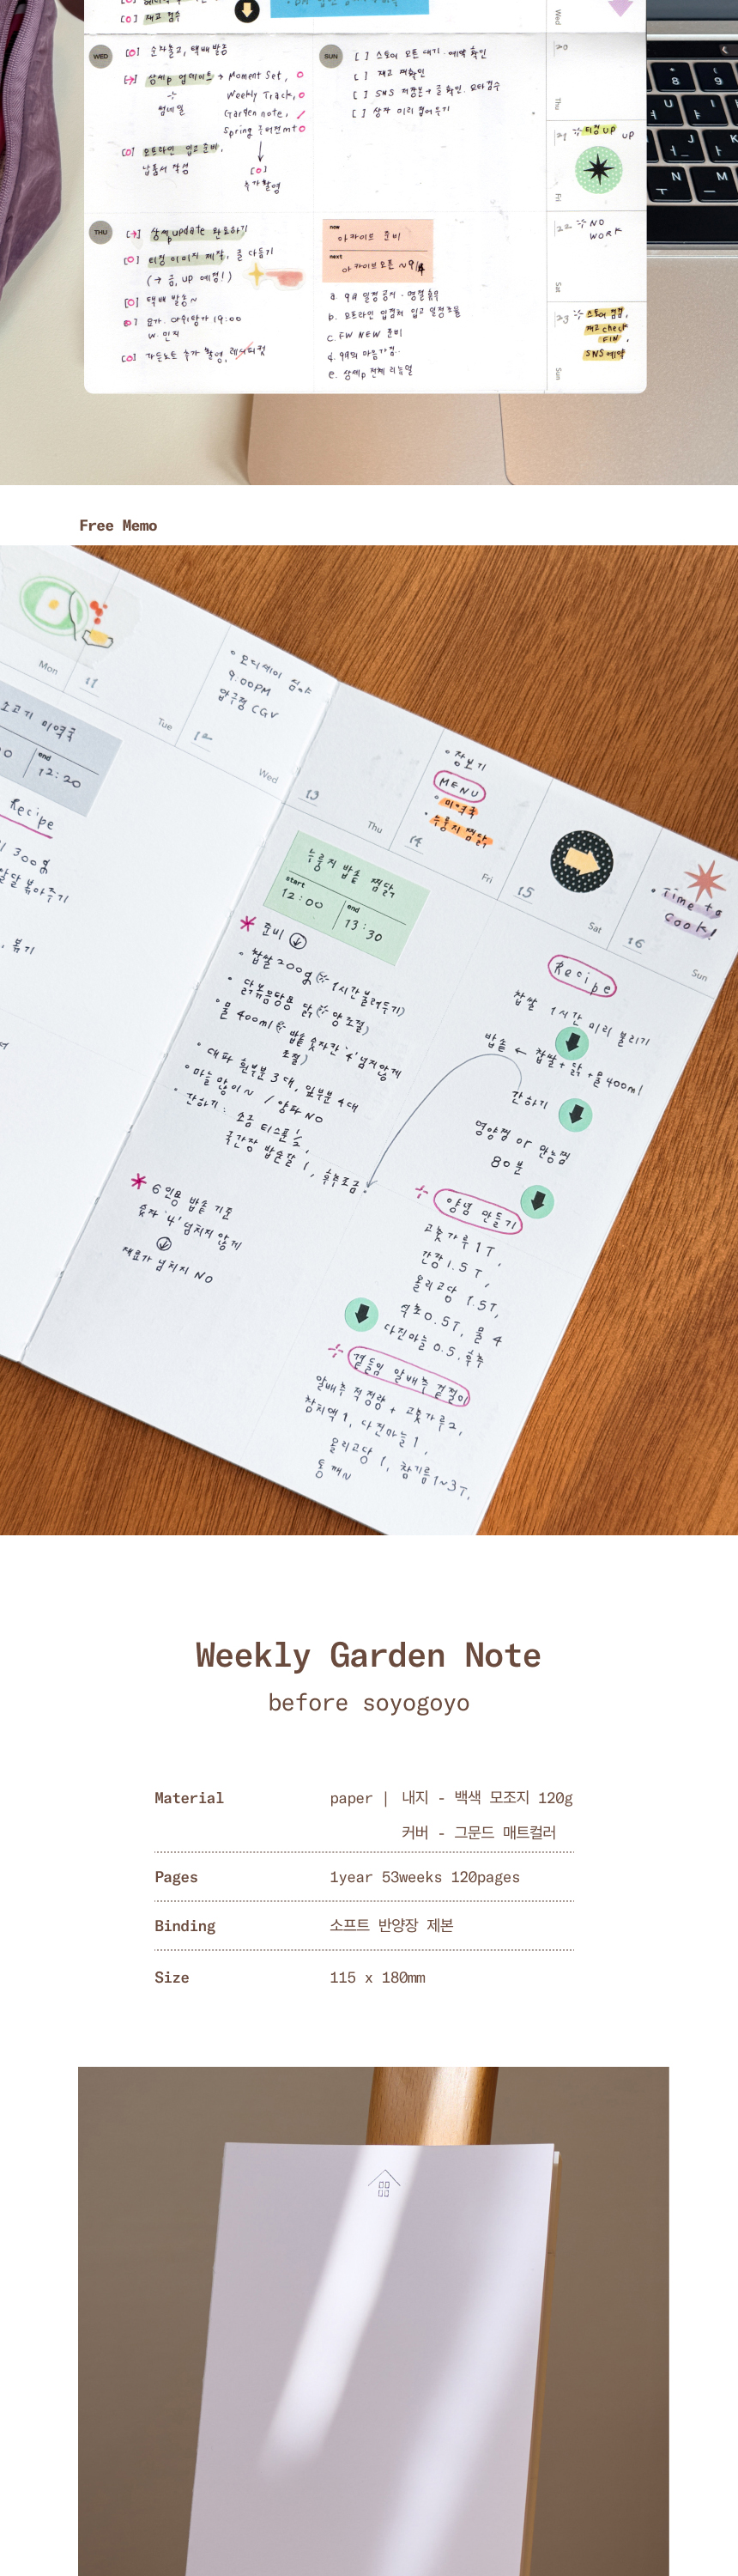 [O] 재고 접수
Wed
WED
[O] 순차출고, 택배 발송
[→] 상세p 업데이트 → Moment Set, O
Weekly Track, O
썸네일
Garden note, /
[O] 오프라인 입고 준비,
납품서 작성
[O]
추가촬영
SUN
[ ] 스토어 오픈 대기 · 예약 확인
[ ] 재고 재확인
20
Thu
21
티징 UP UP
Fri
THU
[→] 상세p update 완료하기
[O] 티징 이미지 제작, 글 다듬기
(→ 금, UP 예정!)
[O] 택배 발송~
19:00
W. 민지
now
아카이브 준비
next
아카이브 오픈 ~9/4
a. 9월 일정 공지 · 명절 휴무
b. 오프라인 입점처 입고 일정 조율
c. FW NEW 준비
d. 9월의 마음가짐..
e. 상세p 전체 리뉴얼
22
NO
WORK
Sat
23
스토어 점검,
재고 check
FIN,
SNS 예약
Sun
Free Memo
Mon
11
Tue
12
Wed
9:00PM
압구정 CGV
소고기 미역국
end
12:20
Recipe
300g
볶기
13
Thu
장보기
MENU
미역국
누룽지 찜닭
14
Fri
15
Sat
Time to
cook!
16
Sun
누룽지 밥솥 찜닭
start
12:00
end
13:30
준비
찹쌀 200g (1시간 불려두기)
닭볶음탕용 닭 (양 조절)
물 400ml (밥솥 숫자칸 '4' 넘지않게
조절)
대파 흰부분 3대, 잎부분 4대
마늘 많이~ / 양파 NO
간하기: 소금 티스푼 1/2,
국간장 밥숟갈 1, 후추조금.
6인용 밥솥 기준
숫자 '4' 넘치지 않게
재료가 넘치지 NO
Recipe
찹쌀 1시간 미리 불리기
밥솥 ← 찹쌀 + 닭 + 물 400ml
간하기
영양찜 or 만능찜
80분
양념 만들기
고춧가루 1T,
간장 1.5T,
올리고당 1.5T,
식초 0.5T, 물 4
다진마늘 0.5, 후추
곁들임 알배추 겉절이
알배추 적정량 + 고춧가루2,
참치액 1, 다진마늘 1,
올리고당 1, 참기름 1~3T,
통깨~
Weekly Garden Note
before soyogoyo
Material paper | 내지 - 백색 모조지 120g
커버 - 그문드 매트컬러
Pages 1year 53weeks 120pages
Binding 소프트 반양장 제본
Size 115 x 180mm